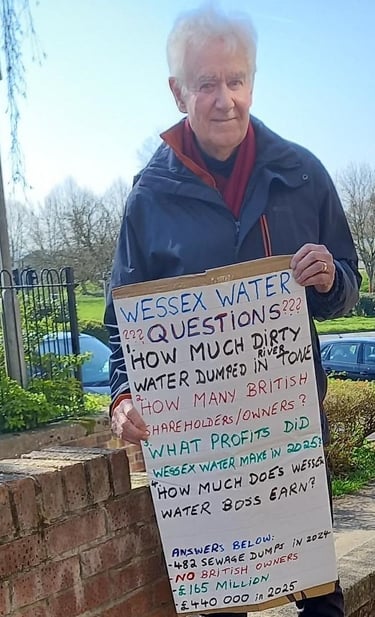 WESSEX WATER
??? QUESTIONS???
1 HOW MUCH DIRTY
WATER DUMPED IN RIVER TONE
2 HOW MANY BRITISH
SHAREHOLDERS/OWNERS?
3 WHAT PROFITS DID
WESSEX WATER MAKE IN 2025?
4 HOW MUCH DOES WESSEX
WATER BOSS EARN?
ANSWERS BELOW:
-482 SEWAGE DUMPS IN 2024
NO BRITISH OWNERS
-£165 MILLION
-£440 000 in 2025